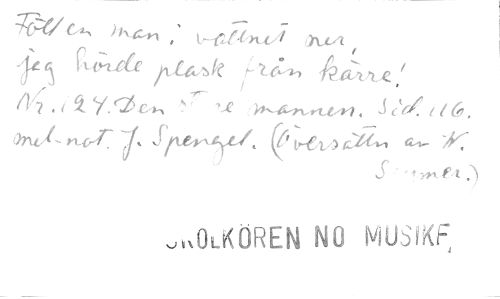 Föll en man i vattnet ner,
jag hörde plask från kärre!
Nr. 124. Den mannen. Sid. 116.
mel-not. J. Spengel. (Översättn av W.
KÖREN NO MUSIK